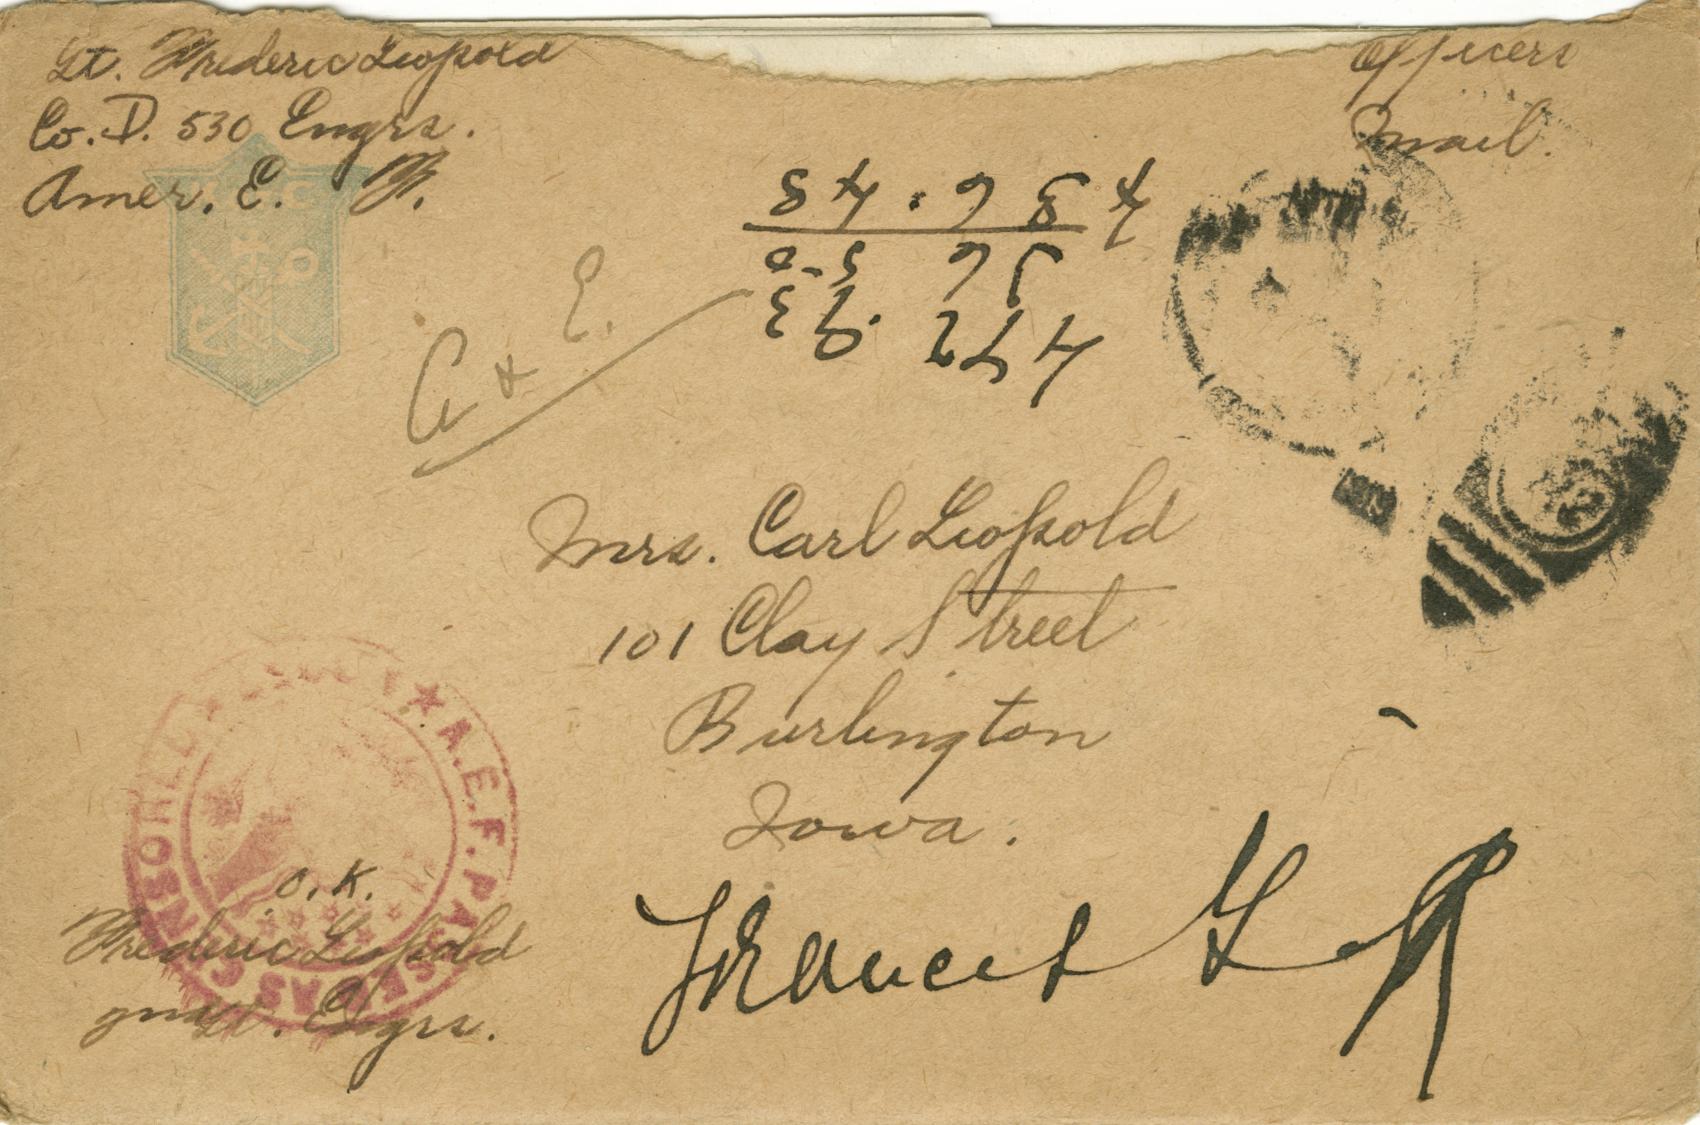 Lt. Frederic Leopold
Co. D. 530 Engrs.
Amer. E. F.
Officers
Mail.
A & E.
Mrs. Carl Leopold
101 Clay Street
Burlington
Iowa.
A.E.F. PASSED AS CENSORED
O.K.
Frederic Leopold
Engrs.
Frances